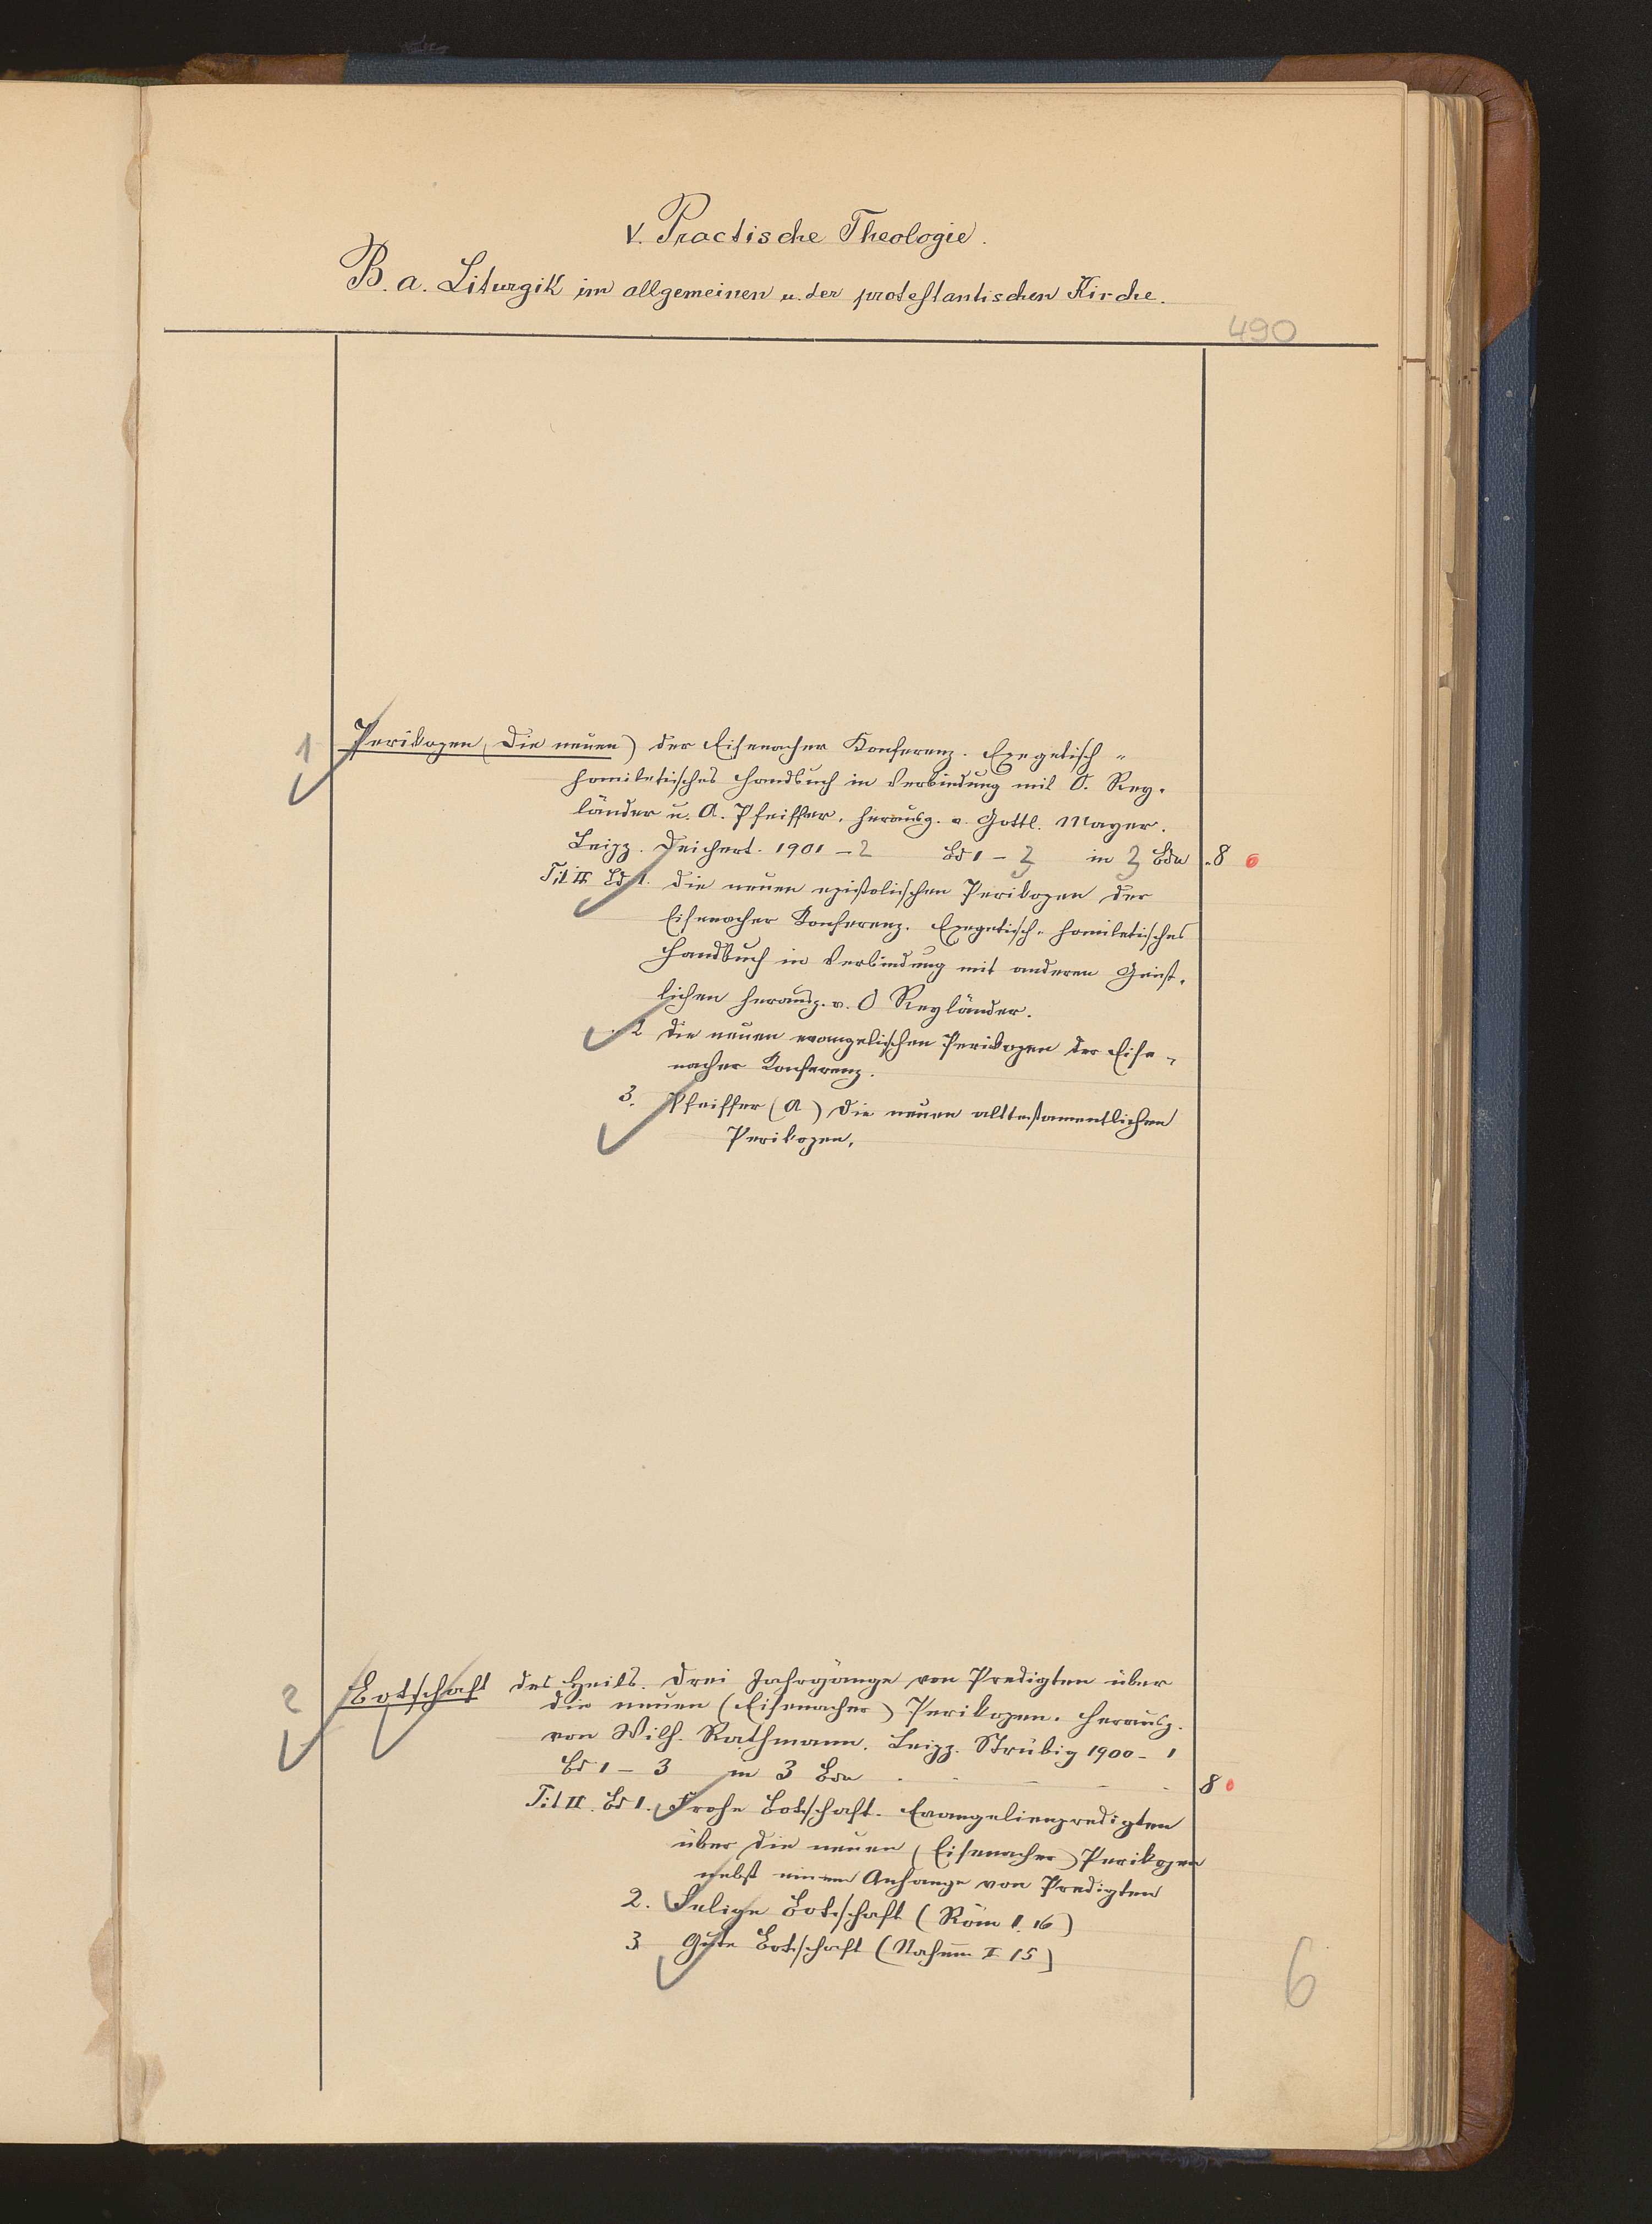 V. Practische Theologie.
B. a. Liturgik im allgemeinen u. der protestantischen Kirche.
490
1 Perikopen (Die neuen) der Eisenacher Konferenz. Exegetisch-
homiletisches Handbuch in Verbindung mit O. Rey-
länder u. A. Pfeiffer, herausg. v. Gottl. Mayer.
Leipz. Deichert. 1901 - 2 Bd 1 - 3 in 3 Bdn 8 0
Tit II Bd 1. Die neuen epistolischen Perikopen der
Eisenacher Konferenz. Exegetisch-homiletisches
Handbuch in Verbindung mit anderen Geist-
lichen herausg. v. O Reyländer.
2 Die neuen evangelischen Perikopen der Eise-
nacher Konferenz.
3. Pfeiffer (A) Die neuen alttestamentlichen
Perikopen.
2 Botschaft des Heils. Drei Jahrgänge von Predigten über
die neuen (Eisenacher) Perikopen. Herausg.
von Wilh. Rathmann. Leipz. Strübig 1900 - 1
Bd 1 - 3 in 3 Bdn 8 0
Tit II. Bd 1. Frohe Botschaft. Evangelienpredigten
über die neuen (Eisenacher) Perikopen
nebst einem Anhange von Predigten
2. Selige Botschaft (Röm 1. 16)
3 Gute Botschaft (Nahum I 15)
6